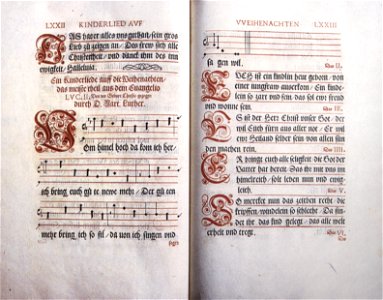 LXXII KINDERLIED AVF
Das hat er alles vns gethan / sein gros
Lieb zu zeigen an / Des frew sich alle
Christenheit / vnd danck ihm des inn
ewigkeit / Halleluia.
Ein Kinderlied auff die Weihenachten /
das meiste theil aus dem Euangelio
LVC. II. Von der Geburt Christi gezogen
durch D. Mart. Luther.
Vom himel hoch da kom ich her /
ich bring euch gu te newe mehr / Der gu ten
mehr bring ich so fil / da von ich singen vnd
sagen
WEIHENACHTEN LXXIII
sa gen wil.
Der II.
EVch ist ein kindlin heut geborn / von
einer jungfraw auserkorn / Ein kinde-
lein so zart vnd fein / das sol ewr freud
vnd wonne sein.
Der III.
ES ist der Herr Christ vnser Got / der
wil Euch fürn aus aller not / Er wil
ewr Heiland selber sein / von allen sün
den machen rein.
Der IIII.
ER bringt euch alle seligkeit / die Got der
Vatter hat bereit / Das ihr mit vns im
himelreich / solt leben nun vnd ewig-
leich.
Der V.
So mercket nun das zeichen recht / die
krippen / windelein so schlecht / Da fin-
det ihr das kind gelegt / das alle welt
erhelt vnd tregt.
Der VI.